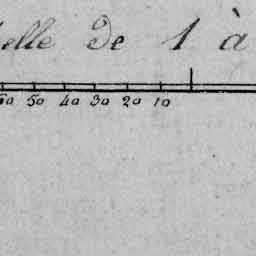 elle de 1 à
50 40 30 20 10